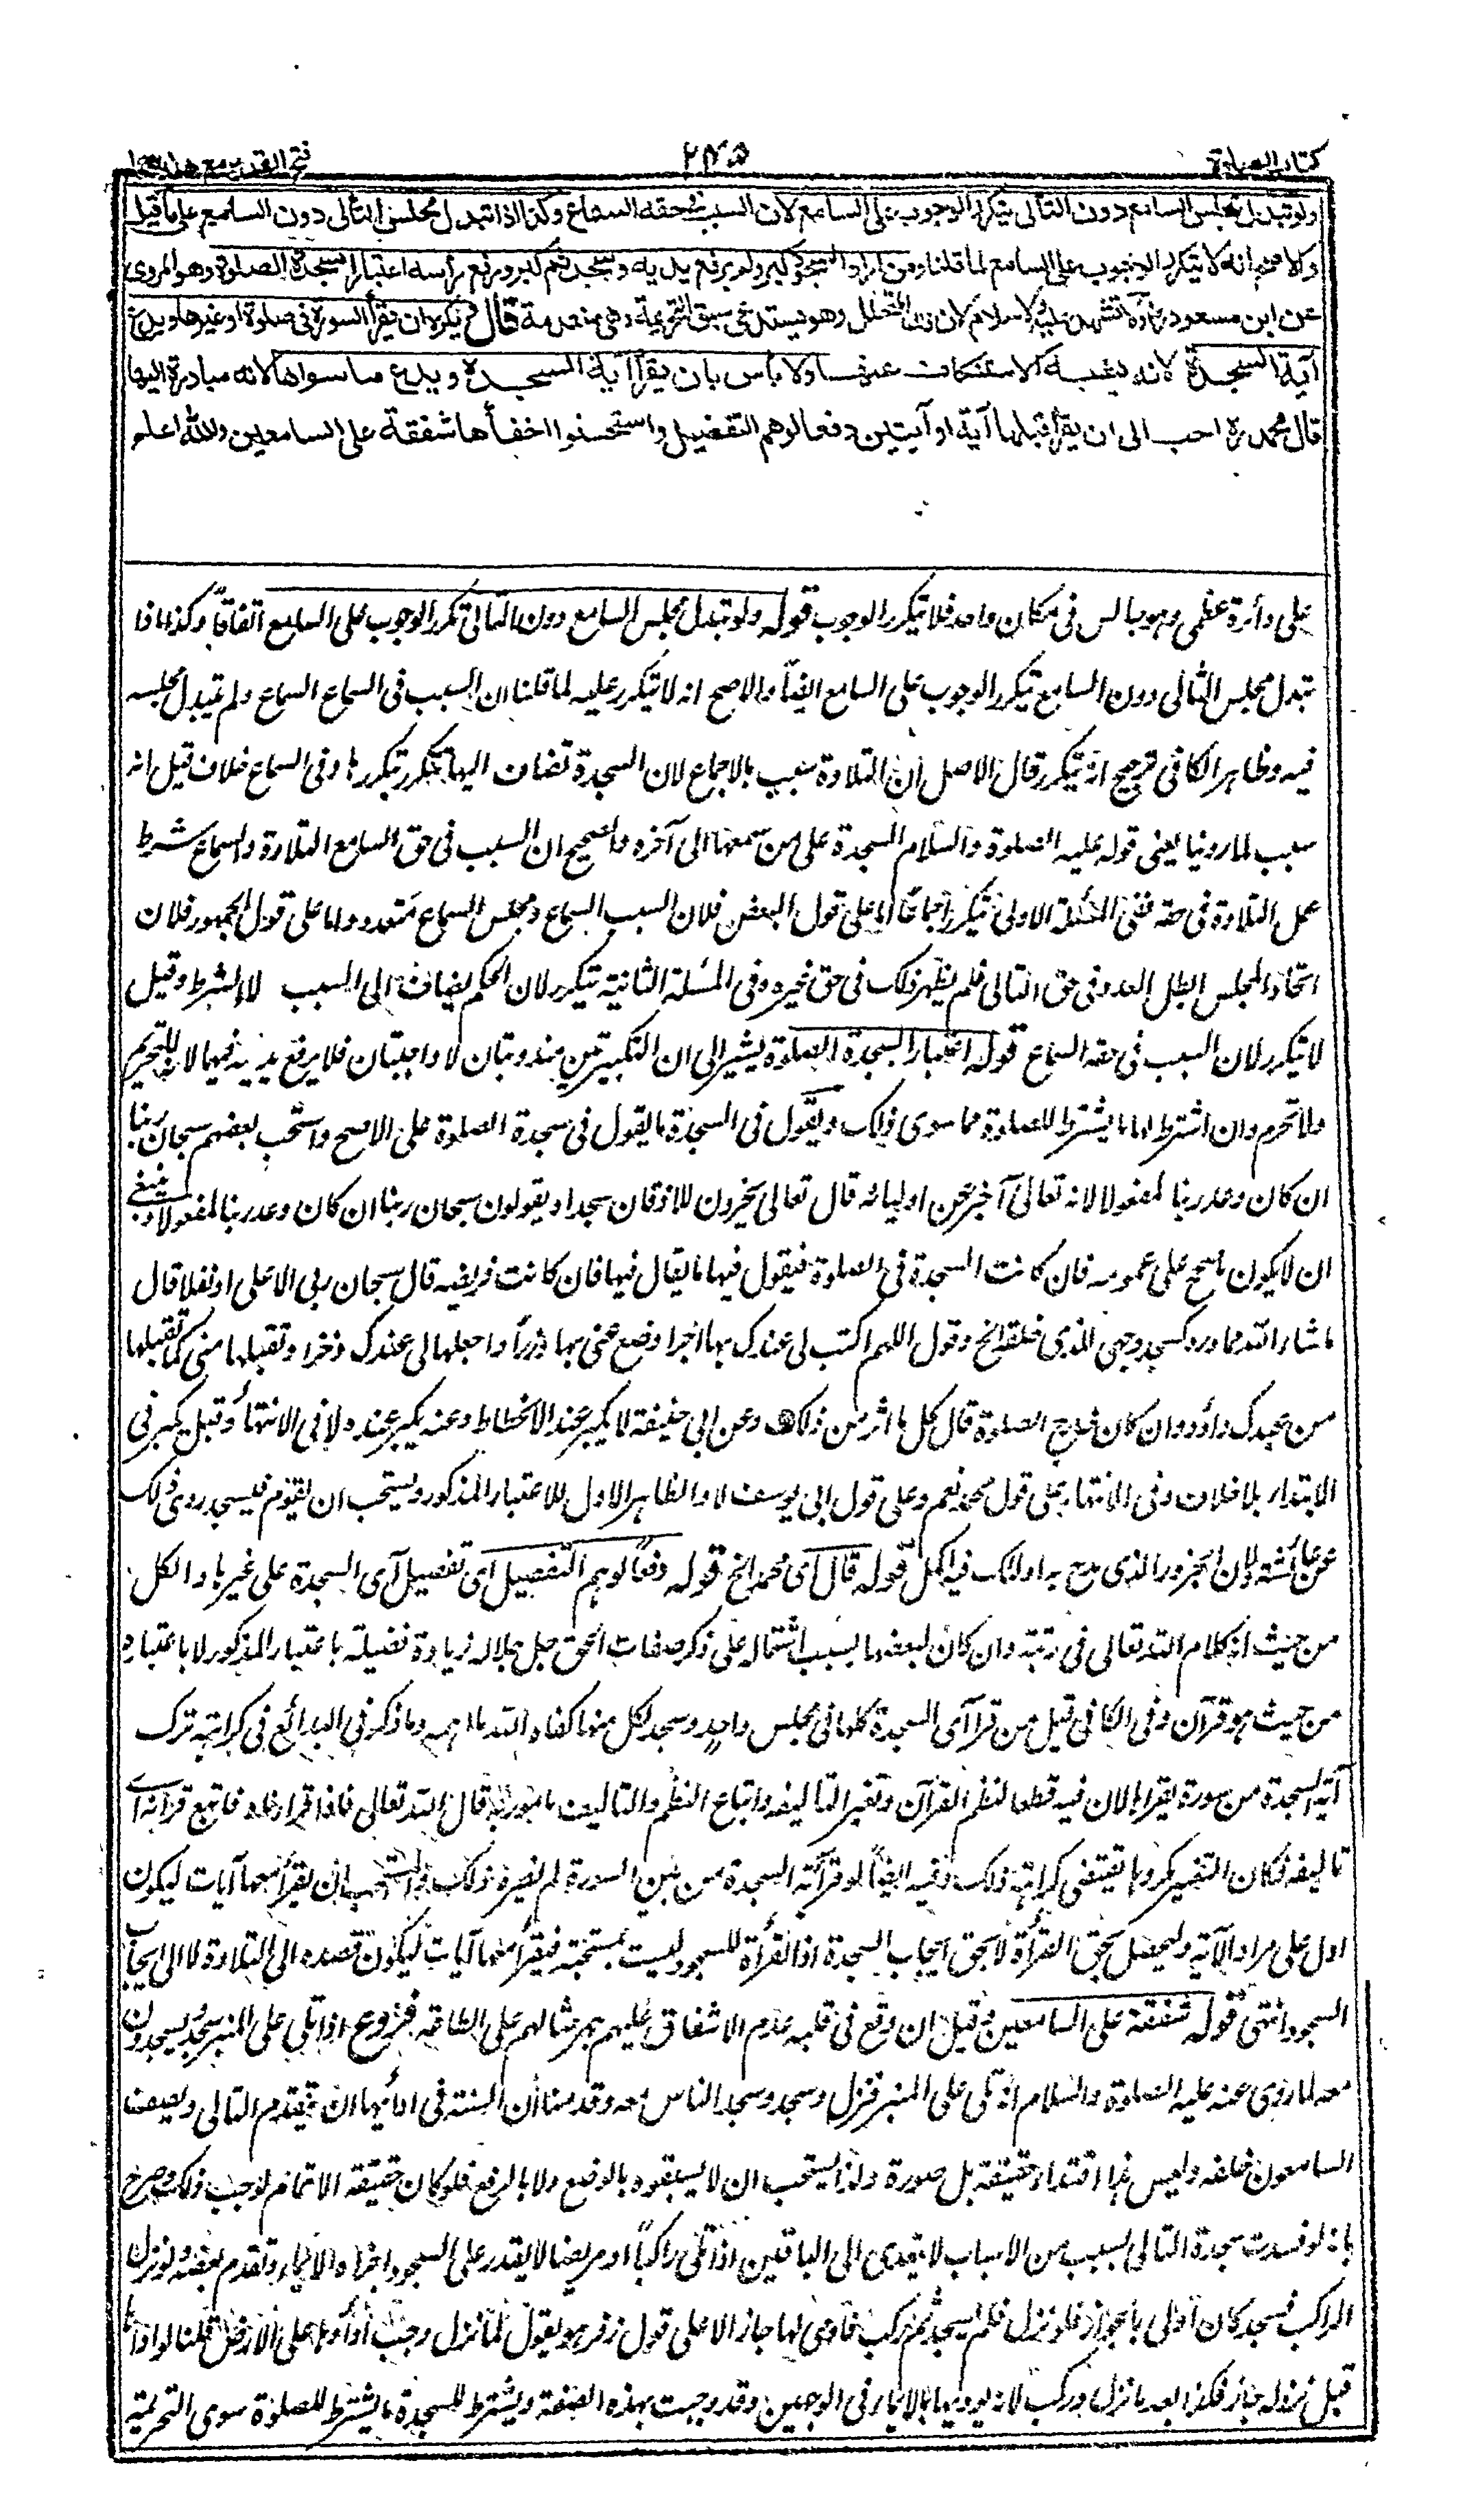 كتاب الصلوة
٢٧٥
فتح القدير مع هدايه
ولو تبدل مجلس السامع دون التالى يتكرر الوجوب على السامع لان السبب فى حقه السماع وكذا اذا تبدل مجلس التالى دون السامع على ما قيل
والاصح انه لا يتكرر الوجوب على السامع لما قلنا ومن اراد السجود كبر ولم يرفع يديه وسجد ثم كبر ورفع رأسه اعتبارا بسجدة الصلوة وهو المروى
عن ابن مسعود رضـ ولا تشهد عليه ولا سلام لان ذلك للتحلل وهو يستدعى سبق التحريمة وهى منعدمة قال ويكره ان يقرأ السورة فى صلوة او غيرها ويدع
آية السجدة لانه يشبه الاستنكاف عنها ولا بأس بان يقرأ آية السجدة ويدع ما سواها لانه مبادرة اليها
قال محمد رح احب الى ان يقرأ قبلها آية او آيتين دفعا لوهم التفضيل واستحسنوا اخفأها شفقة على السامعين والله اعلم
على دائرة عظمى وهو جالس فى مكان واحد فلا يتكرر الوجوب قوله ولو تبدل مجلس السامع دون التالى تكرر الوجوب على السامع اتفاقاً وكذا اذا
تبدل مجلس التالى دون السامع يتكرر الوجوب على السامع ايضاً والاصح انه لا يتكرر عليه لما قلنا ان السبب فى السماع السماع ولم يتبدل مجلسه
فيه وظاهر الكافى ترجيح انه يتكرر قال الاصل ان التلاوة سبب بالاجماع لان السجدة تضاف اليها وتتكرر بتكررها وفى السماع خلاف قيل انه
سبب لما روينا يعنى قوله عليه الصلوة والسلام السجدة على من سمعها الى آخره والصحيح ان السبب فى حق السامع التلاوة والسماع شرط
عمل التلاوة فى حقه ففى المسئلة الاولى يتكرر اجماعاً اما على قول البعض فلان السبب السماع ومجلس السماع متعدد واما على قول الجمهور فلان
اتحاد المجلس ابطل العدد فى حق التالى فلم يظهر ذلك فى حق غيره وفى المسئلة الثانية يتكرر لان الحكم يضاف الى السبب لا الشرط وقيل
لا يتكرر لان السبب فى حقه السماع قوله اعتبارا بسجدة الصلوة يشير الى ان التكبيرتين مندوبتان لا واجبتان فلا يرفع يديه فيهما لانه للتحريم
ولا تحرم وان اشترط لها ما يشترط للصلوة مما سوى ذلك ويقول فى السجدة ما يقول فى سجدة الصلوة على الاصح واستحب بعضهم سبحان ربنا
ان كان وعد ربنا لمفعولا لانه تعالى اخبر عن اوليائه قال تعالى يخرون للاذقان سجدا ويقولون سبحان ربنا ان كان وعد ربنا لمفعولا وينبغى
ان لا يكون ما صحح على عمومه فان كانت السجدة فى الصلوة فيقول فيها ما يقال فيها فان كانت فريضه قال سبحان ربى الاعلى او نفلا قال
ما شاء الله مما ورد كسجد وجهى للذى خلقه الخ وقول اللهم اكتب لى عندك بها اجرا وضع عنى بها وزراً واجعلها لى عندك ذخرا وتقبلها منى كما تقبلتها
من عبدك داؤد وان كان خارج الصلوة قال كل ما اثر من ذلك وعن ابى حنيفة لا يكبر عند الانحطاط وعنه يكبر عنده لا فى الانتهاء وقيل يكبر فى
الابتداء بلا خلاف وفى الانتهاء على قول محمد نعم وعلى قول ابى يوسف لا والظاهر الاول للاعتبار المذكور ويستحب ان يقوم فيسجد روى ذلك
عن عائشة لان الخرور الذى مدح به اولئك فيه اكمل قوله قال اى محمد الخ قوله دفعا لوهم التفضيل اى تفضيل آى السجدة على غيرها والكل
من حيث انه كلام الله تعالى فى رتبة وان كان لبعضها بسبب اشتماله على ذكر صفات الحق جل جلاله زيادة فضيلة باعتبار المذكور لا باعتباره
من حيث هو قرآن وفى الكافى قيل من قرأ آى السجدة كلها فى مجلس واحد وسجد لكل منها كفاه الله ما اهمه وما ذكر فى البدائع فى كراهية ترك
آية السجدة من سورة يقرأها لان فيه قطعا لنظم القرآن وتغير التاليفه واتباع النظم والتاليف مامور به قال الله تعالى فاذا قرأناه فاتبع قرآنه اى
تاليفه فكان التغيير مكروها يقتضى كراهية ذلك وفيه ايضاً لو قرأ آية السجدة من بين السورة لم يضره ذلك والمستحب ان يقرأ معها آيات ليكون
ادل على مراد الآية وليحصل بحق القرأة لا بحق ايجاب السجدة اذ القرأة للسجود ليست بمستحبة فيقرأ معها آيات ليكون قصده الى التلاوة لا الى ايجاب
السجود انتهى قوله شفقة على السامعين وقيل ان وقع فى قلبه عدم الاشفاق عليهم جهر حثا لهم على الطاعة فروع اذا تلى على المنبر سجد ويسجدون
معه لما روى عنه عليه الصلوة والسلام انه تلى على المنبر فنزل وسجد وسجد الناس معه وقدمنا ان السنة فى ادائها ان يتقدم التالى ويصف
السامعون خلفه وليس هذا اقتداء حقيقة بل صورة ولذا يستحب ان لا يسبقوه بالوضع ولا بالرفع فلو كان حقيقة الاتمام لوجب ذلك وصرح
بانه لو فسدت سجدة التالى بسبب من الاسباب لا يتعدى الى الباقين اذا تلى راكباً او مريضا لا يقدر على السجود اجزاه الايماء وتقدم بعضه ولو نزل
الراكب فسجد كان اولى بالجواز فلو نزل فلم يسجد ثم ركب فاومى لها جاز الا على قول زفر هو يقول لما نزل وجب اداؤها على الارض قلنا لو اداها
قبل نزوله جاز فكذا بعد ما نزل وركب لانه يوديها بالايماء فى الوجهين وقد وجبت بهذه الصفة ويشترط للسجدة ما يشترط للصلوة سوى التحريمة